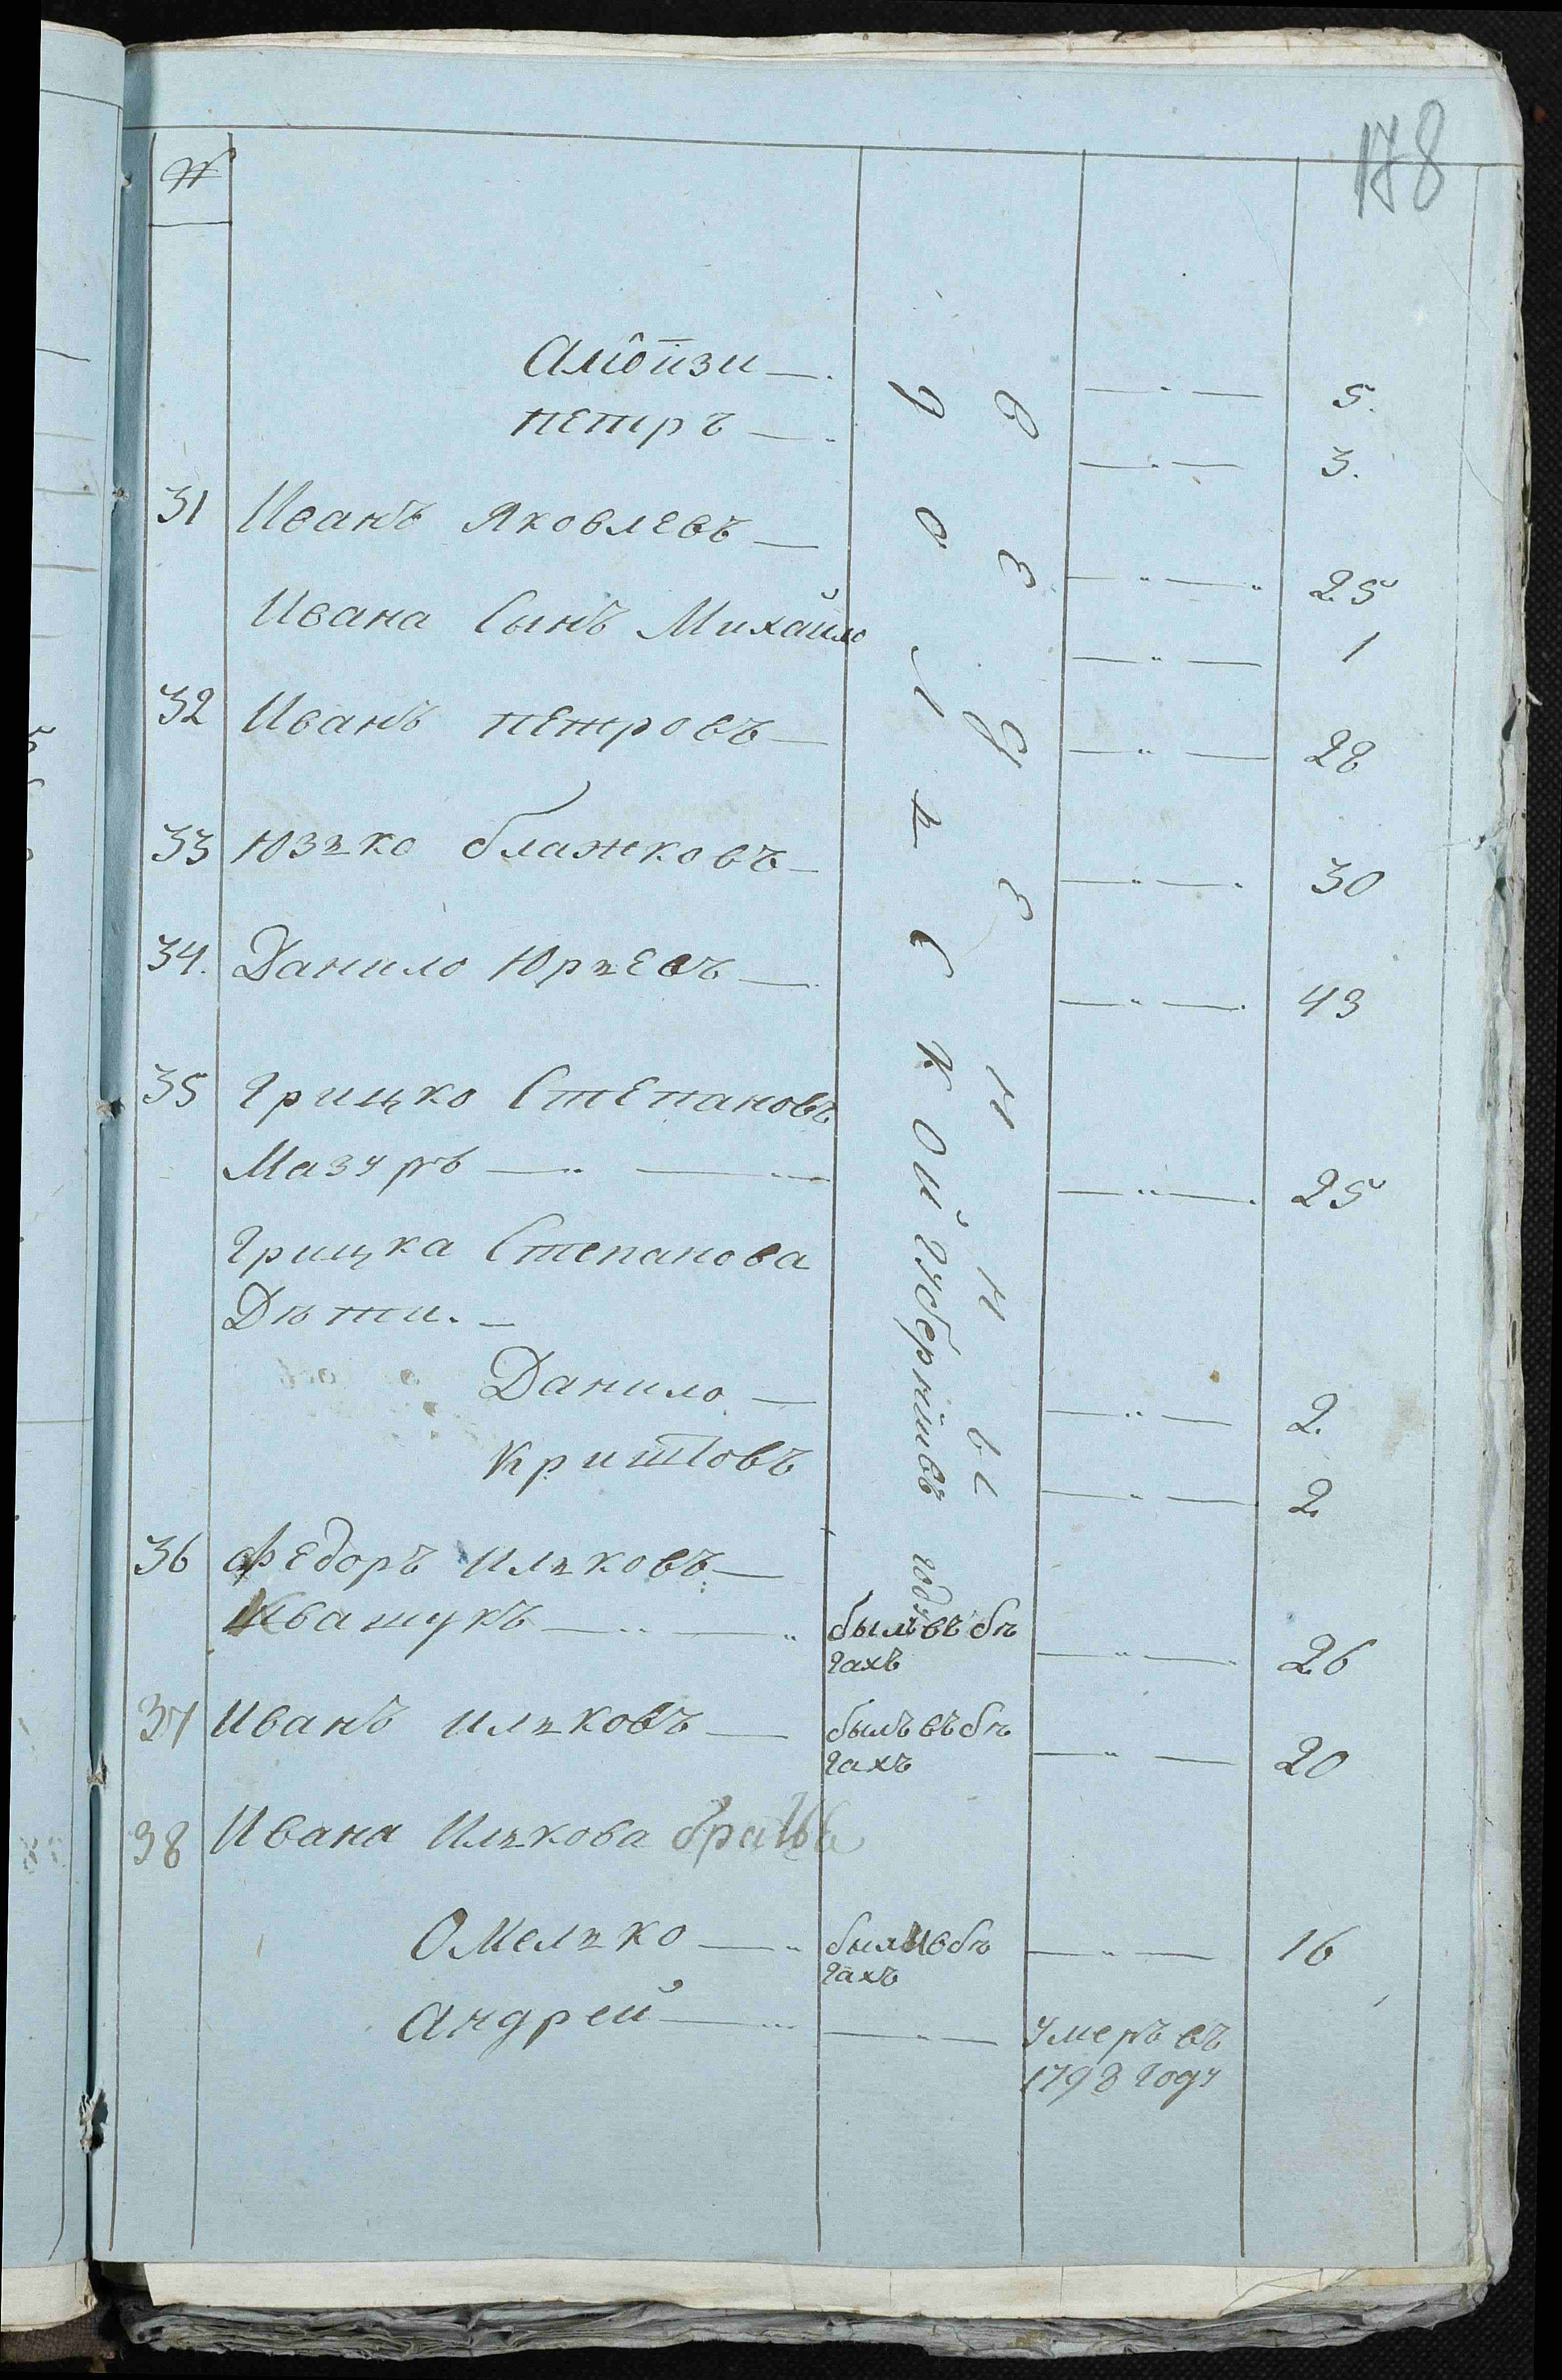 178
№
Алоизи — 5.
Петръ — 3.
31 Иванъ Яковлевъ — 25
Ивана Сынъ Михайло 1
32 Иванъ Петровъ — 28
33 Юзько Блажковъ — 30
34. Данило Юрьевъ — 43
35 Грицко Степановъ
Мазуръ — 25
Грицка Степанова
Дѣти. —
Данило — 2.
Криштовъ 2
36 Федоръ Ильковъ —
Ивашукъ — былъ въ бѣ
гахъ 26
37 Иванъ Ильковъ — былъ въ бѣ
гахъ 20
38 Ивана Илькова братья
Омелько — были в бѣ
гахъ 16
Андрей — Умеръ въ
1798 Году
веденны
Подольской Губерніи въ году